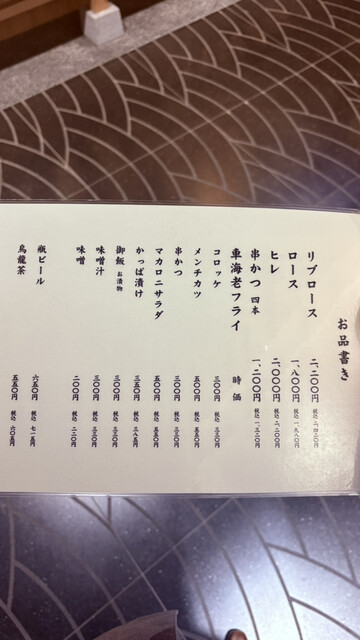 お品書き
リブロース 二、二〇〇円 税込 二、四二〇円
ロース 一、八〇〇円 税込 一、九八〇円
ヒレ 二、〇〇〇円 税込 二、二〇〇円
串かつ 四本 一、二〇〇円 税込 一、三二〇円
車海老フライ 時価
コロッケ 三〇〇円 税込 三三〇円
メンチカツ 五〇〇円 税込 五五〇円
串かつ 三〇〇円 税込 三三〇円
マカロニサラダ 五〇〇円 税込 五五〇円
かっぱ漬け 三五〇円 税込 三八五円
御飯 お漬物 三〇〇円 税込 三三〇円
味噌汁 三〇〇円 税込 三三〇円
味噌 二〇〇円 税込 二二〇円
瓶ビール 六五〇円 税込 七一五円
烏龍茶 五五〇円 税込 六〇五円